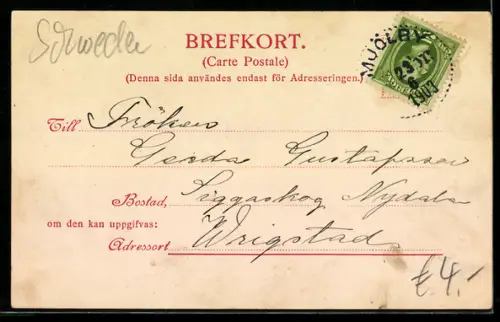 Schweden
BREFKORT.
(Carte Postale)
(Denna sida användes endast för Adresseringen.)
MJÖLBY
1901
Till Fröken
Gerda Gustafsson
Bostad, Siggaskog Nydala
om den kan uppgifvas:
Adressort Wrigstad
£4.-